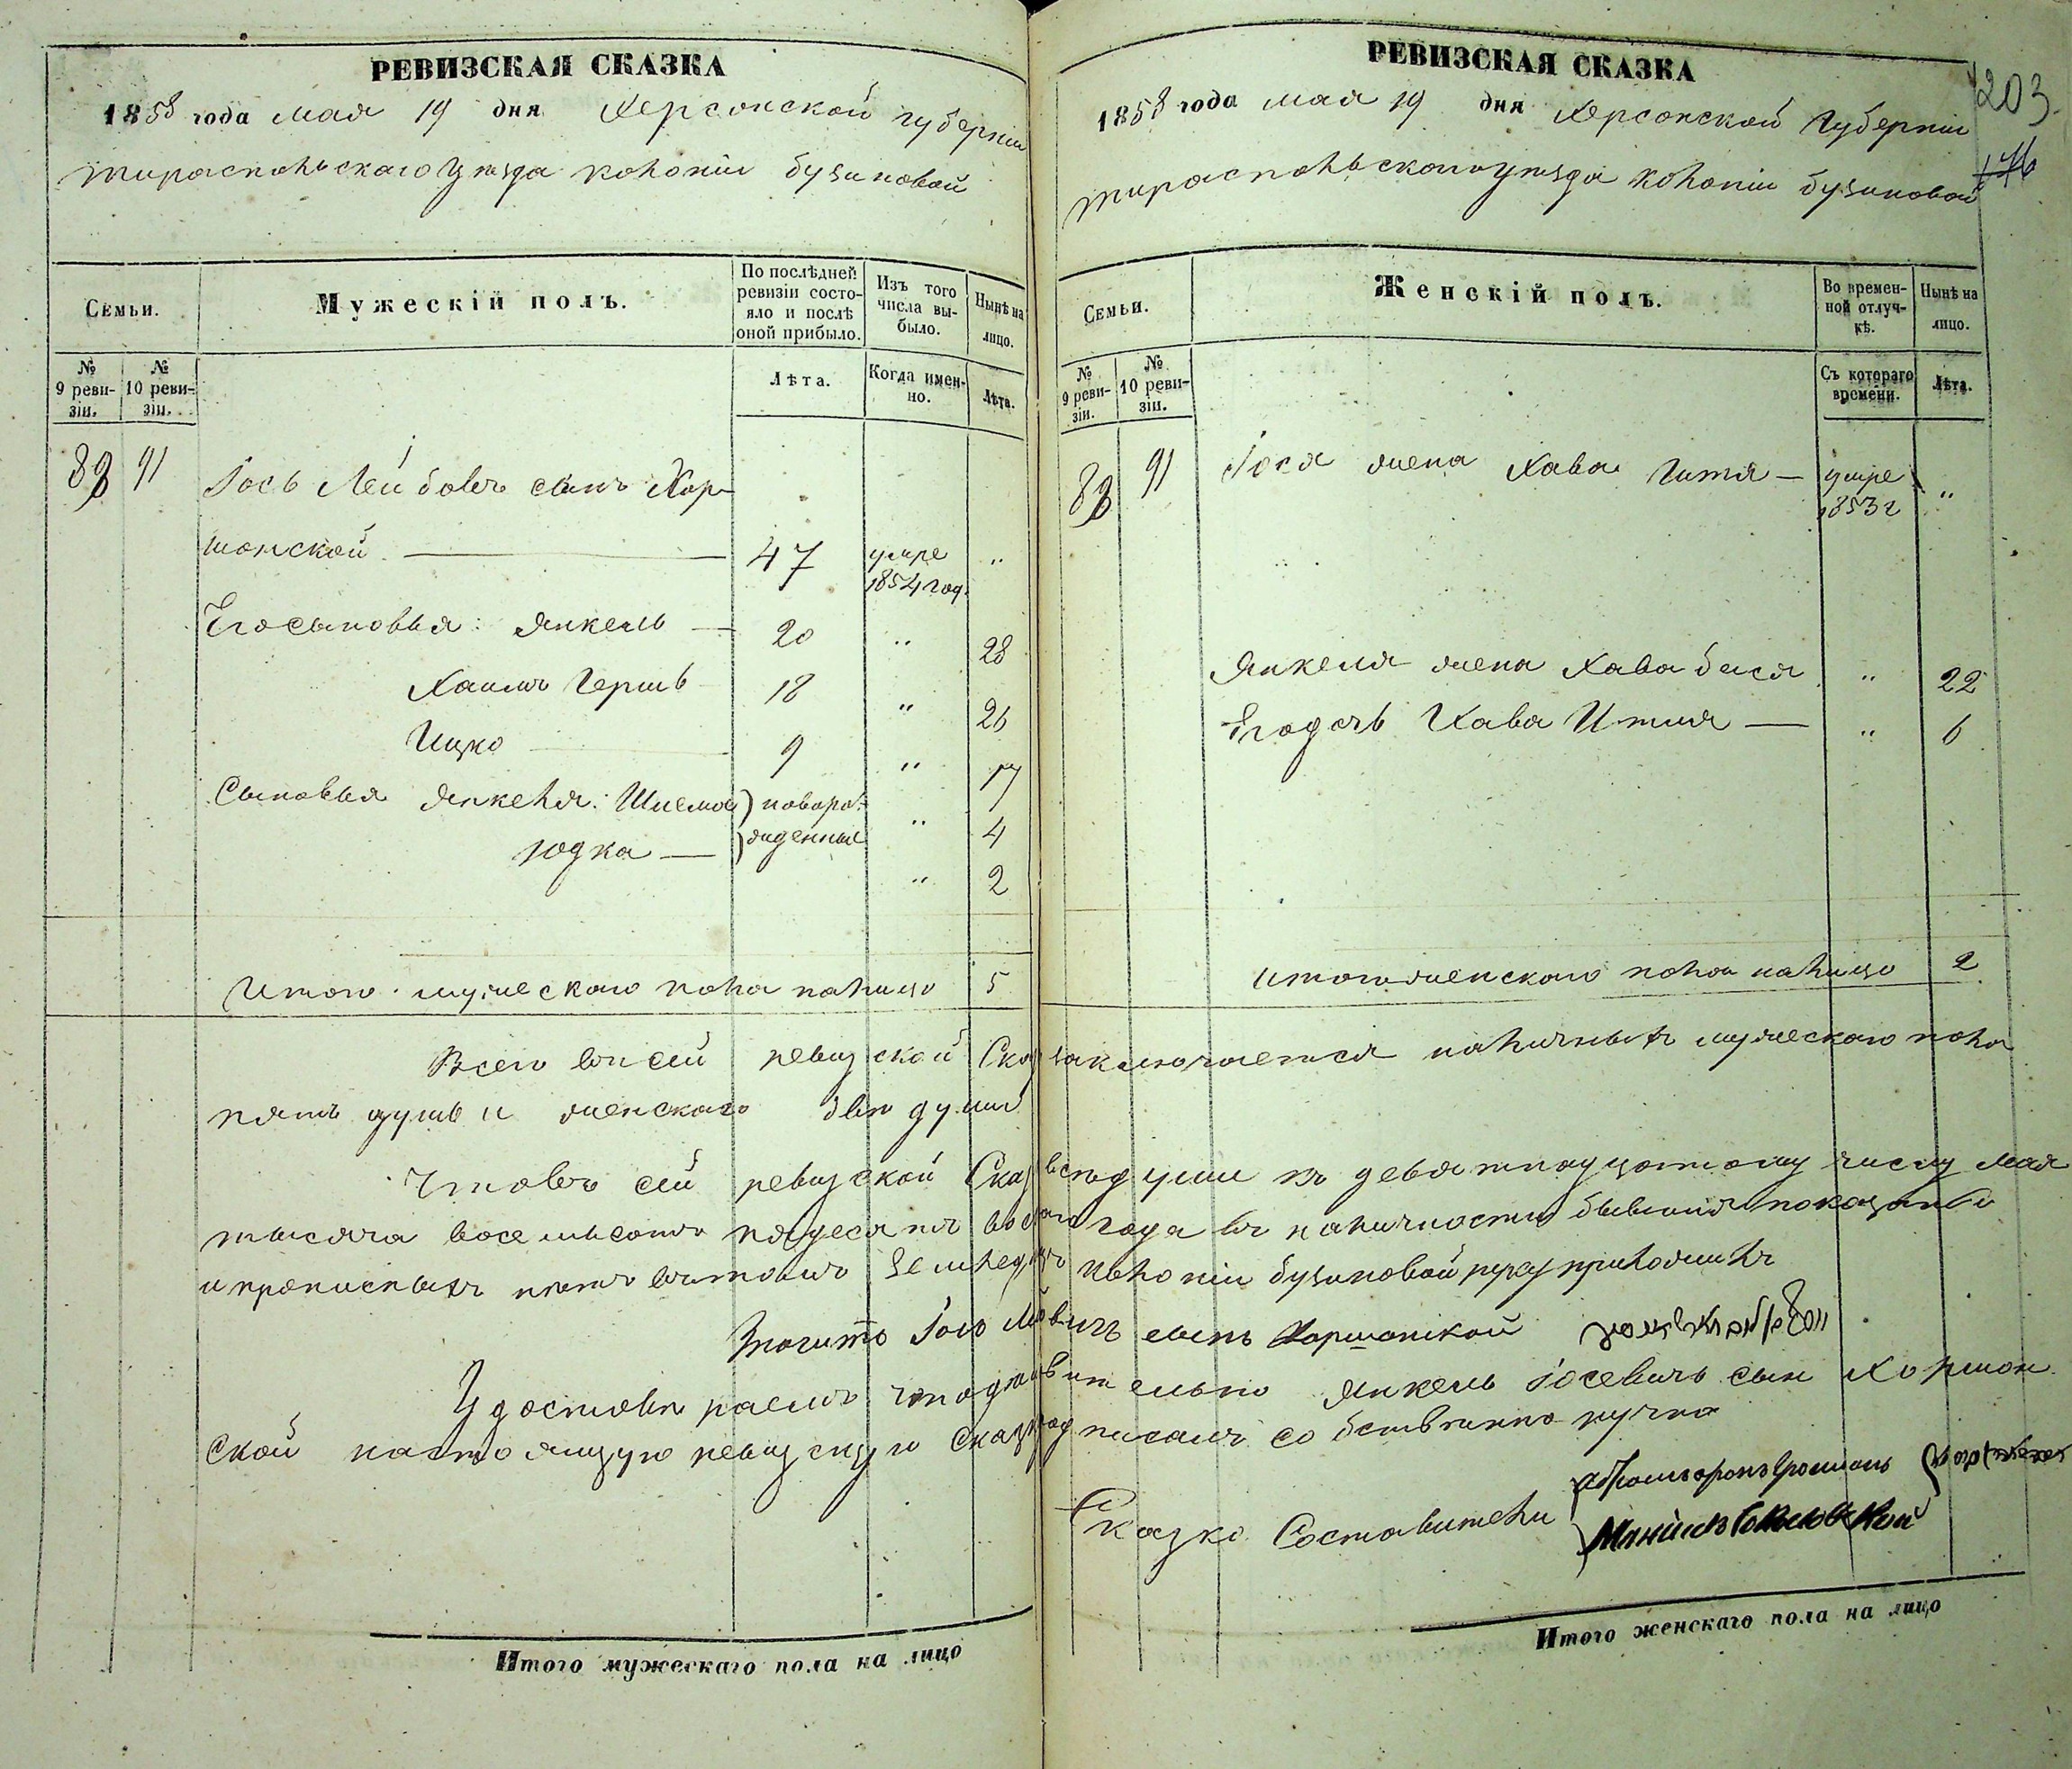 РЕВИЗСКАЯ СКАЗКА
1858 года мая 19 дня Херсонской губерніи
тираспольскаго уѣзда колоніи бузиновой
Семьи.
Мужескій полъ.
По послѣдней ревизіи состояло и послѣ оной прибыло.
Изъ того числа выбыло.
Нынѣ на лицо.
№ 9 ревизіи.
№ 10 ревизіи.
Лѣта.
Когда именно.
Лѣта.
91 Іось Лейбовъ сынъ Хор-
шонской 47 умре 1854 год. "
Его сыновья: Янкель 20 " 28
Хаимъ Гершъ 18 " 26
Ицко 9 " 17
Сыновья Янкеля: Шлема ) новоро- " 4
Юдка ) жденные " 2
Итого мужескаго пола налицо 5
РЕВИЗСКАЯ СКАЗКА
203
1858 года мая 19 дня Херсонской Губерніи
тираспольскаго уѣзда колоніи бузиновой
Семьи.
Женскій полъ.
Во временной отлучкѣ.
Нынѣ на лицо.
№ 9 ревизіи.
№ 10 ревизіи.
Съ котораго времени.
Лѣта.
91 Іося жена Хава Гитя умре 1853 г "
Янкеля жена Хава бася " 22
Его дочь Хава Итля " 6
итого женскаго пола налицо 2
Всего въ сей ревизской Сказ заключается наличныхъ мужескаго пола
пять душъ и женскаго двѣ души
Что въ сей ревизской Сказ всѣ души къ девятнадцатому числу мая
тысяча восемьсотъ пядесятъ года въ наличности бывшія показаны
и прописныхъ нѣтъ въ томъ колоніи бузиновой
Іось сынъ Хоршонской
Удостовѣраемъ что Янкель Іосевичъ сын Хоршон
ской настоящую ревизскую Сказку подписалъ собственно ручно
Сказко Составители
Итого мужескаго пола на лицо
Итого женскаго пола на лицо